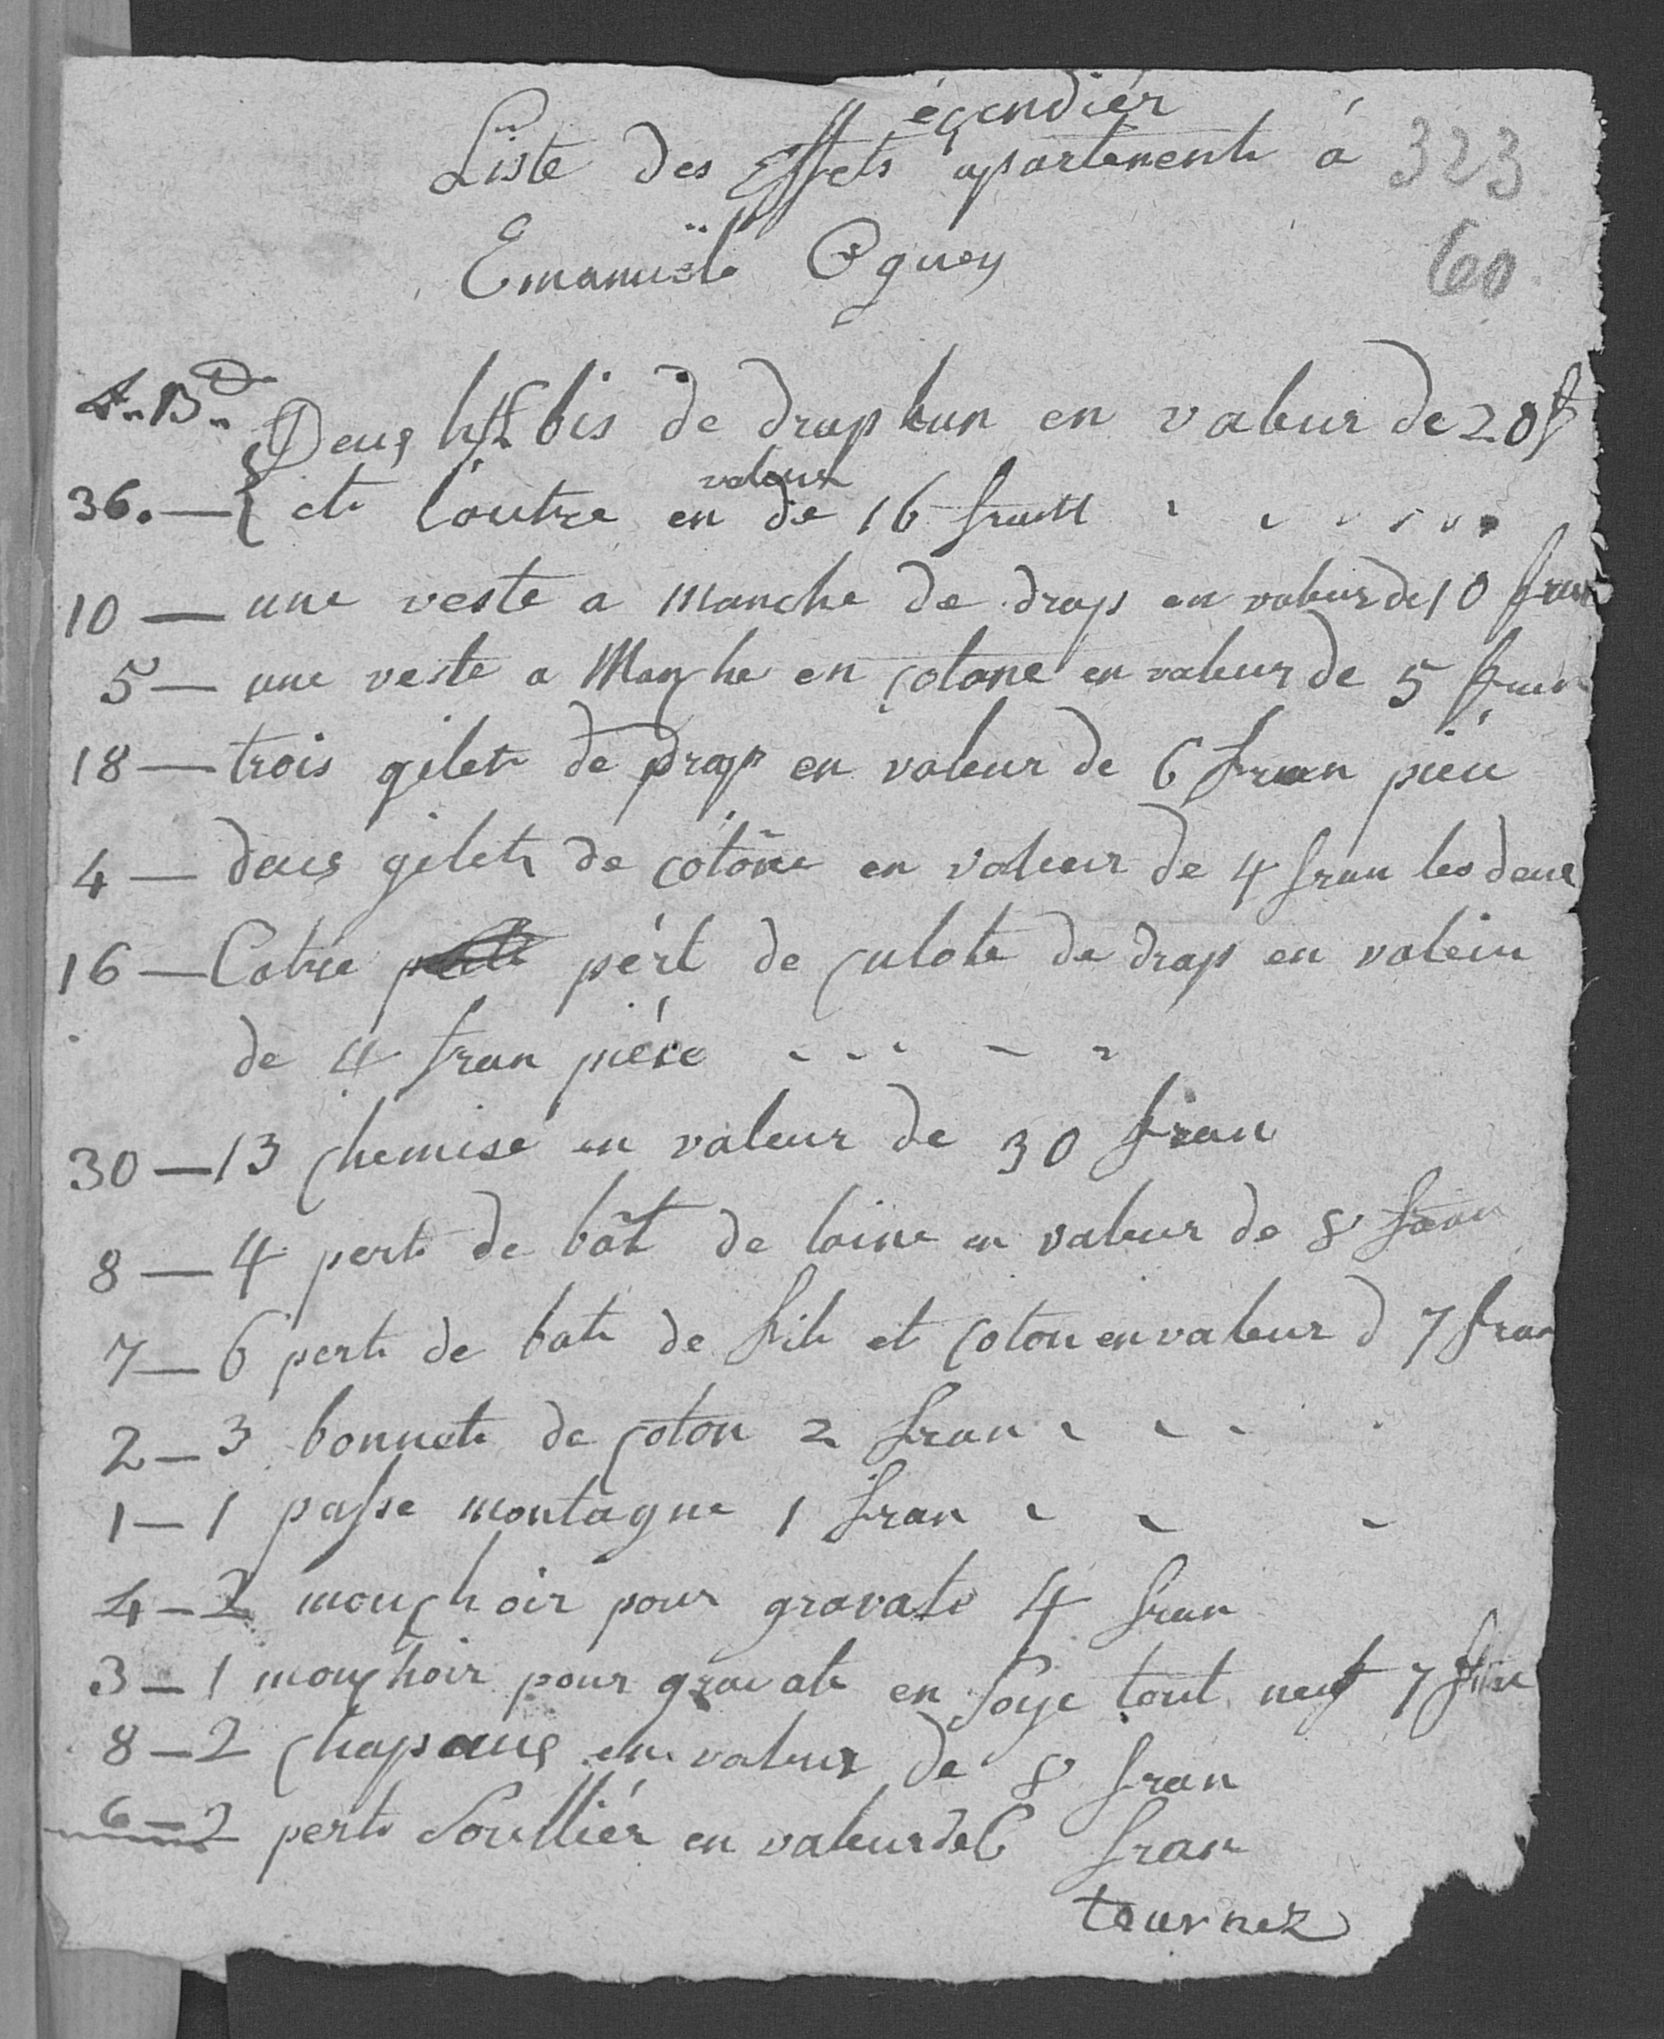 éçendiér
Liste des Effets apartenent à 323
Emanuël Oguey 60
Deuς habis de drap lun en valeur de 20 f
valeur
36.— et loutre en de 16 frant
10 — une veste a manche de drap en valeur de 10 fran
5 — une veste a Manche en cotone en valeur de 5 fran
18 — trois gilet de drap en valeur de 6 fran piéce
4 — deus gilet de cotône en valeur de 4 fran les deus
16 — Catre pért de culote de drap en valeur
de 4 fran piéce
30 — 13 chemise en valeur de 30 fran
8 — 4 pert de bât de laine en valeur de 8 fran
7 — 6 pert de bat de file et coton en valeur d 7 fran
2 — 3 bonnet de coton 2 fran
1 — 1 passe montagne 1 fran
4 — 2 mouchoir pour gravate 4 fran
3 — 1 mouchoir pour gravate en soye tout neuf 7 fran
8 — 2 chapaus en valeur de 8 fran
6 — 2 pert Soulliér en valeur de 6 fran
tournez